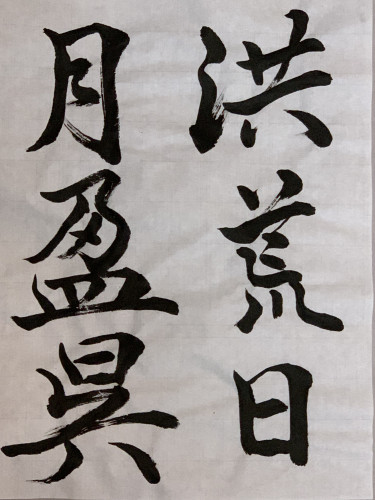 洪荒日
月盈昃